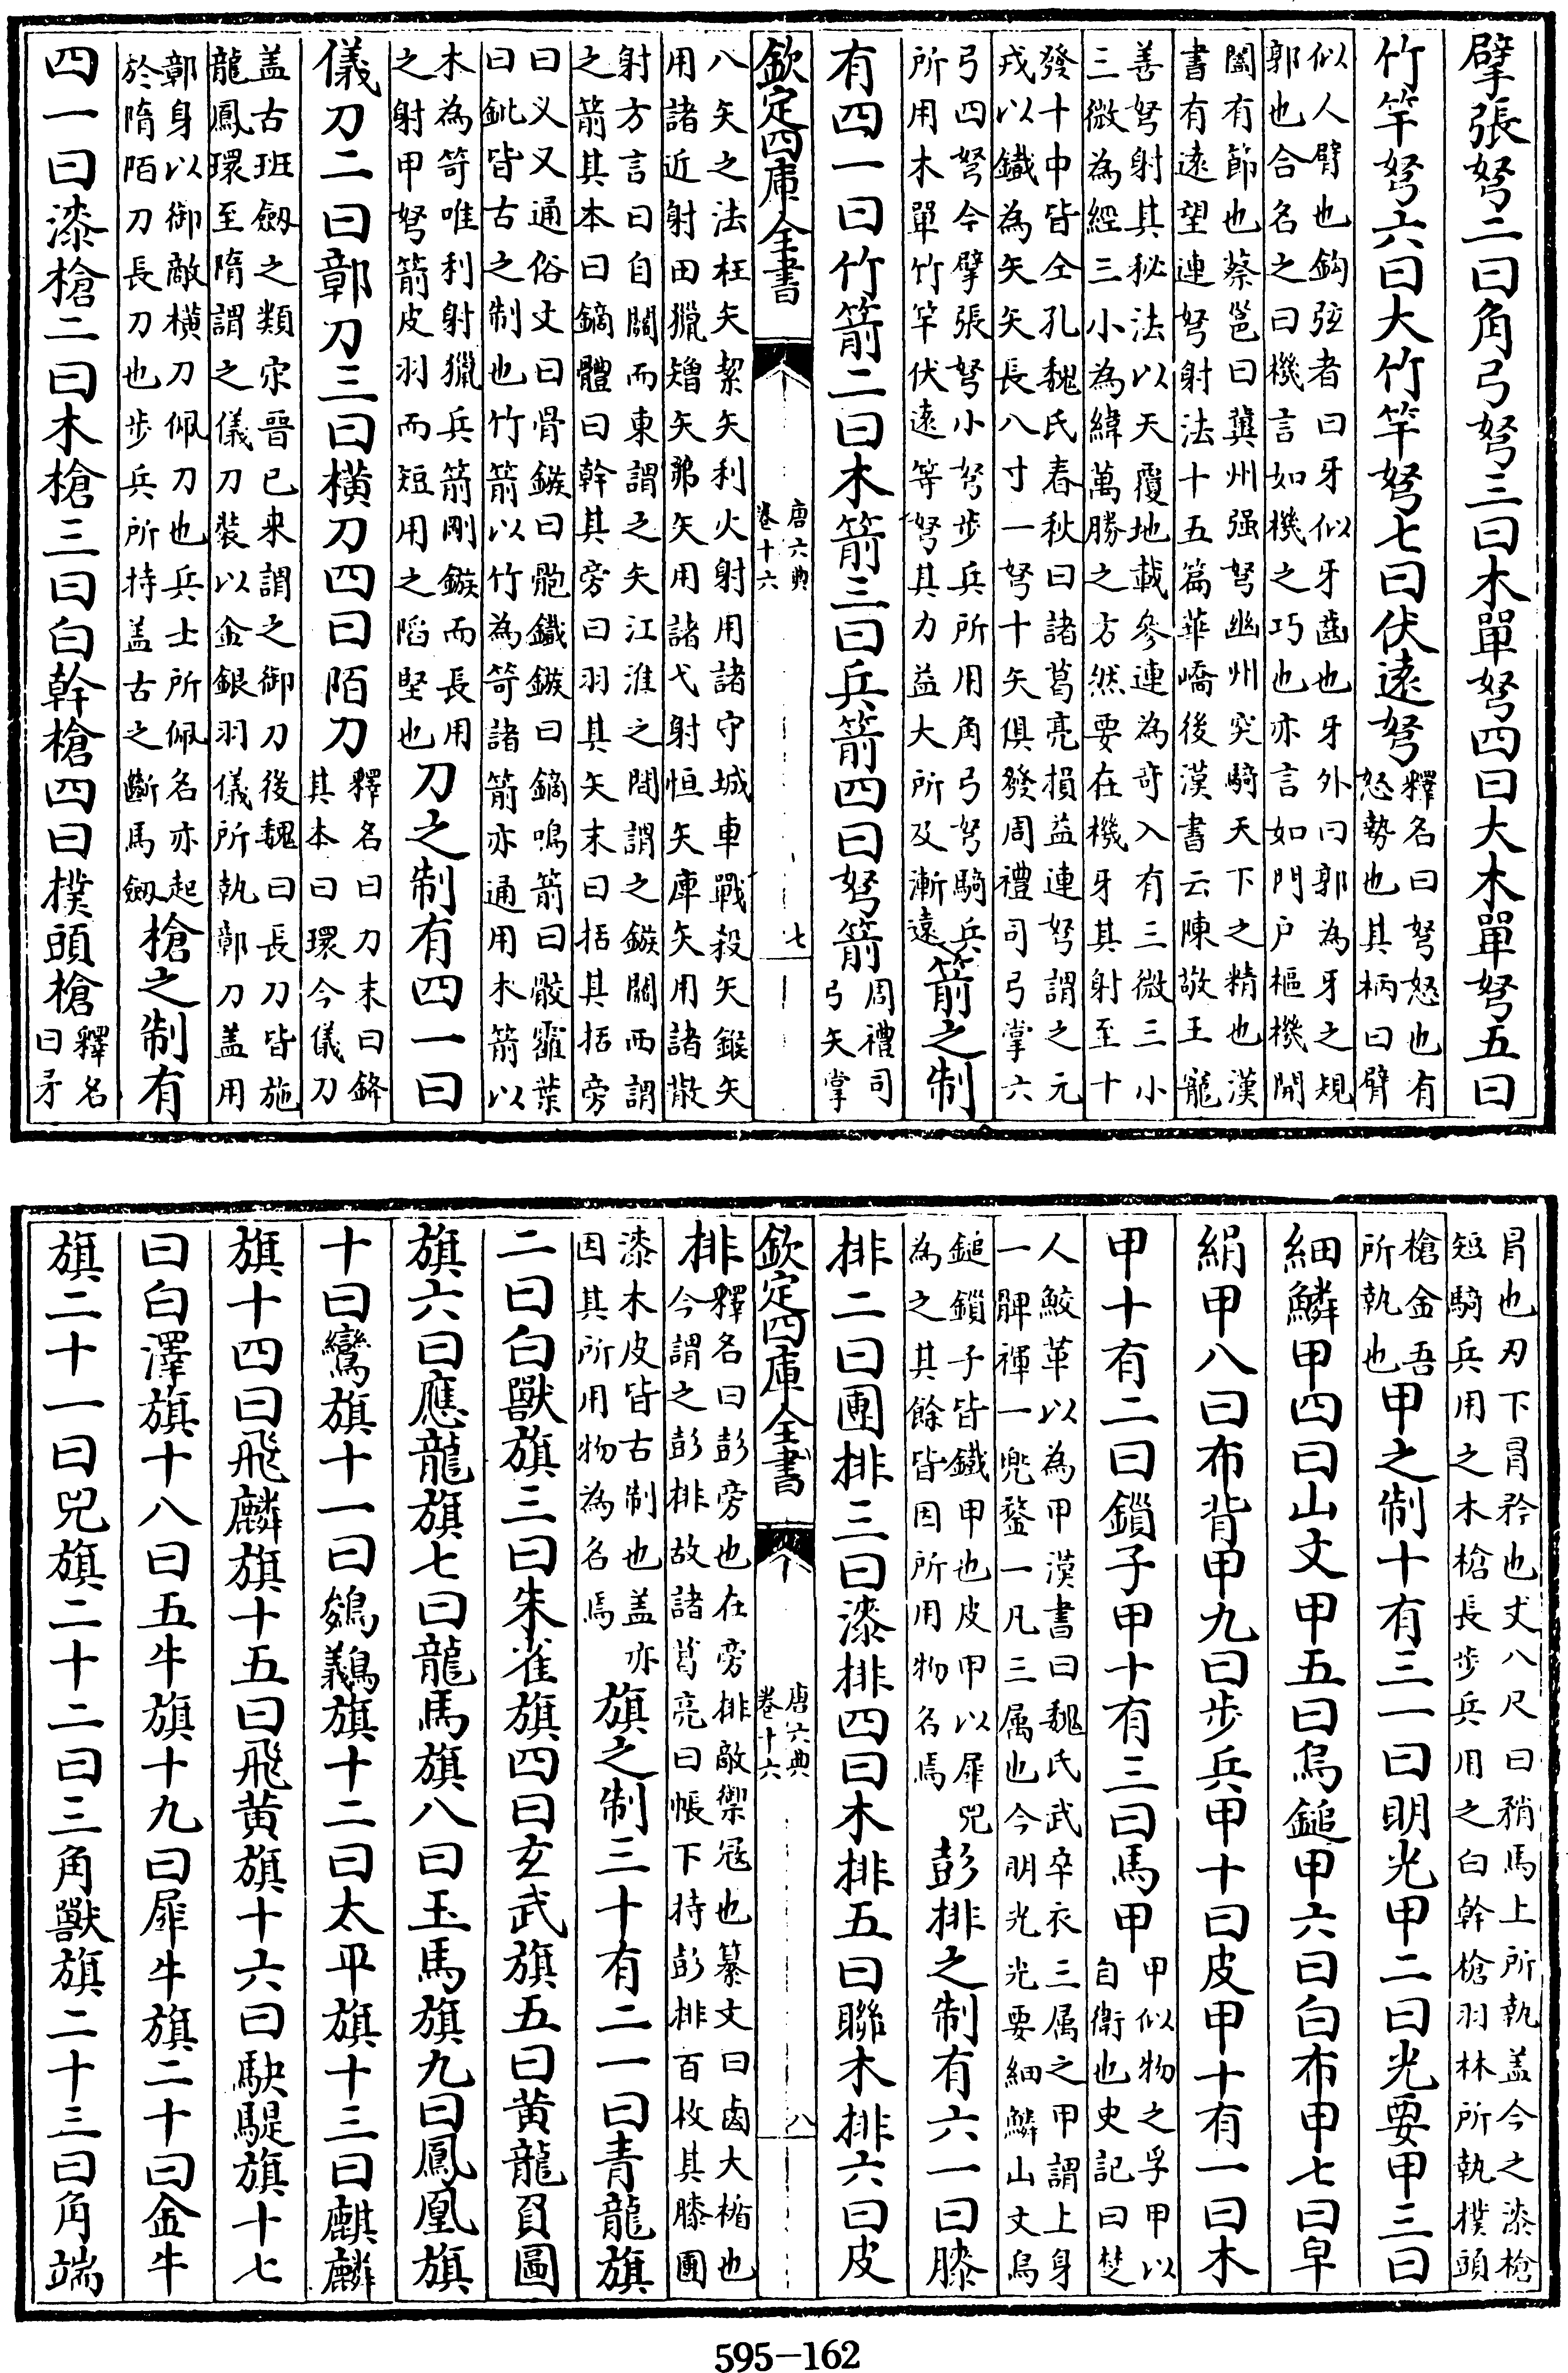 擘張弩二曰角弓弩三曰木單弩四曰大木單弩五曰
竹竿弩六曰大竹竿弩七曰伏逺弩釋名曰弩怒也有
怒勢也其柄曰臂
似人臂也鈎弦者曰牙似牙齒也牙外曰郭為牙之規
郭也合名之曰機言如機之巧也亦言如門户樞機開
闔有節也蔡邕曰冀州强弩幽州突騎天下之精也漢
書有逺望連弩射法十五篇華嶠後漢書云陳敬王寵
善弩射其秘法以天覆地載參連為竒入有三微三小
三微為經三小為緯萬勝之方然要在機牙其射至十
發十中皆仝孔魏氏春秋曰諸葛亮損益連弩謂之元
戎以鐵為矢矢長八寸一弩十矢俱發周禮司弓掌六
弓四弩今擘張弩小弩步兵所用角弓弩騎兵
所用木單竹竿伏逺等弩其力益大所及漸逺箭之制
有四一曰竹箭二曰木箭三曰兵箭四曰弩箭周禮司
弓矢掌
欽定四庫全書
唐六典
卷十六
七
八矢之法枉矢絜矢利火射用諸守城車戰殺矢鍭矢
用諸近射田獵矰矢茀矢用諸弋射恒矢庫矢用諸散
射方言曰自關而東謂之矢江淮之間謂之鍭關西謂
之箭其本曰鏑體曰幹其旁曰羽其矢末曰括其括旁
曰义义通俗文曰骨鏃曰骲鐵鏃曰鏑鳴箭曰骹霍葉
曰鈚皆古之制也竹箭以竹為笴諸箭亦通用木箭以
木為笴唯利射獵兵箭剛鏃而長用
之射甲弩箭皮羽而短用之陷堅也刀之制有四一曰
儀刀二曰鄣刀三曰橫刀四曰陌刀釋名曰刀末曰鋒
其本曰環今儀刀
盖古班劔之類宋晉已來謂之御刀後魏曰長刀皆施
龍鳳環至隋謂之儀刀裝以金銀羽儀所執鄣刀盖用
鄣身以御敵橫刀佩刀也兵士所佩名亦起
於隋陌刀長刀也步兵所持盖古之斷馬劔槍之制有
四一曰漆槍二曰木槍三曰白幹槍四曰撲頭槍釋名
曰矛
冐也刃下冐矜也丈八尺曰矟馬上所執盖今之漆槍
短騎兵用之木槍長步兵用之白幹槍羽林所執撲頭
槍金吾
所執也甲之制十有三一曰明光甲二曰光要甲三曰
細鱗甲四曰山文甲五曰烏鎚甲六曰白布甲七曰皁
絹甲八曰布背甲九曰步兵甲十曰皮甲十有一曰木
甲十有二曰鎖子甲十有三曰馬甲甲似物之孚甲以
自衛也史記曰楚
人鮫革以為甲漢書曰魏氏武卒衣三属之甲謂上身
一髀褌一兠鍪一凡三属也今明光光要細鱗山文烏
鎚鎖子皆鐵甲也皮甲以犀兕
為之其餘皆因所用物名焉彭排之制有六一曰膝
排二曰團排三曰漆排四曰木排五曰聯木排六曰皮
欽定四庫全書
唐六典
卷十六
八
排釋名曰彭旁也在旁排敵禦冦也纂文曰鹵大楯也
今謂之彭排故諸葛亮曰帳下持彭排百枚其膝團
漆木皮皆古制也盖亦
因其所用物為名焉旗之制三十有二一曰青龍旗
二曰白獸旗三曰朱雀旗四曰玄武旗五曰黃龍負圖
旗六曰應龍旗七曰龍馬旗八曰玉馬旗九曰鳳凰旗
十曰鸞旗十一曰鵕鸃旗十二曰太平旗十三曰麒麟
旗十四曰飛麟旗十五曰飛黃旗十六曰駃騠旗十七
曰白澤旗十八曰五牛旗十九曰犀牛旗二十曰金牛
旗二十一曰兕旗二十二曰三角獸旗二十三曰角端
595-162